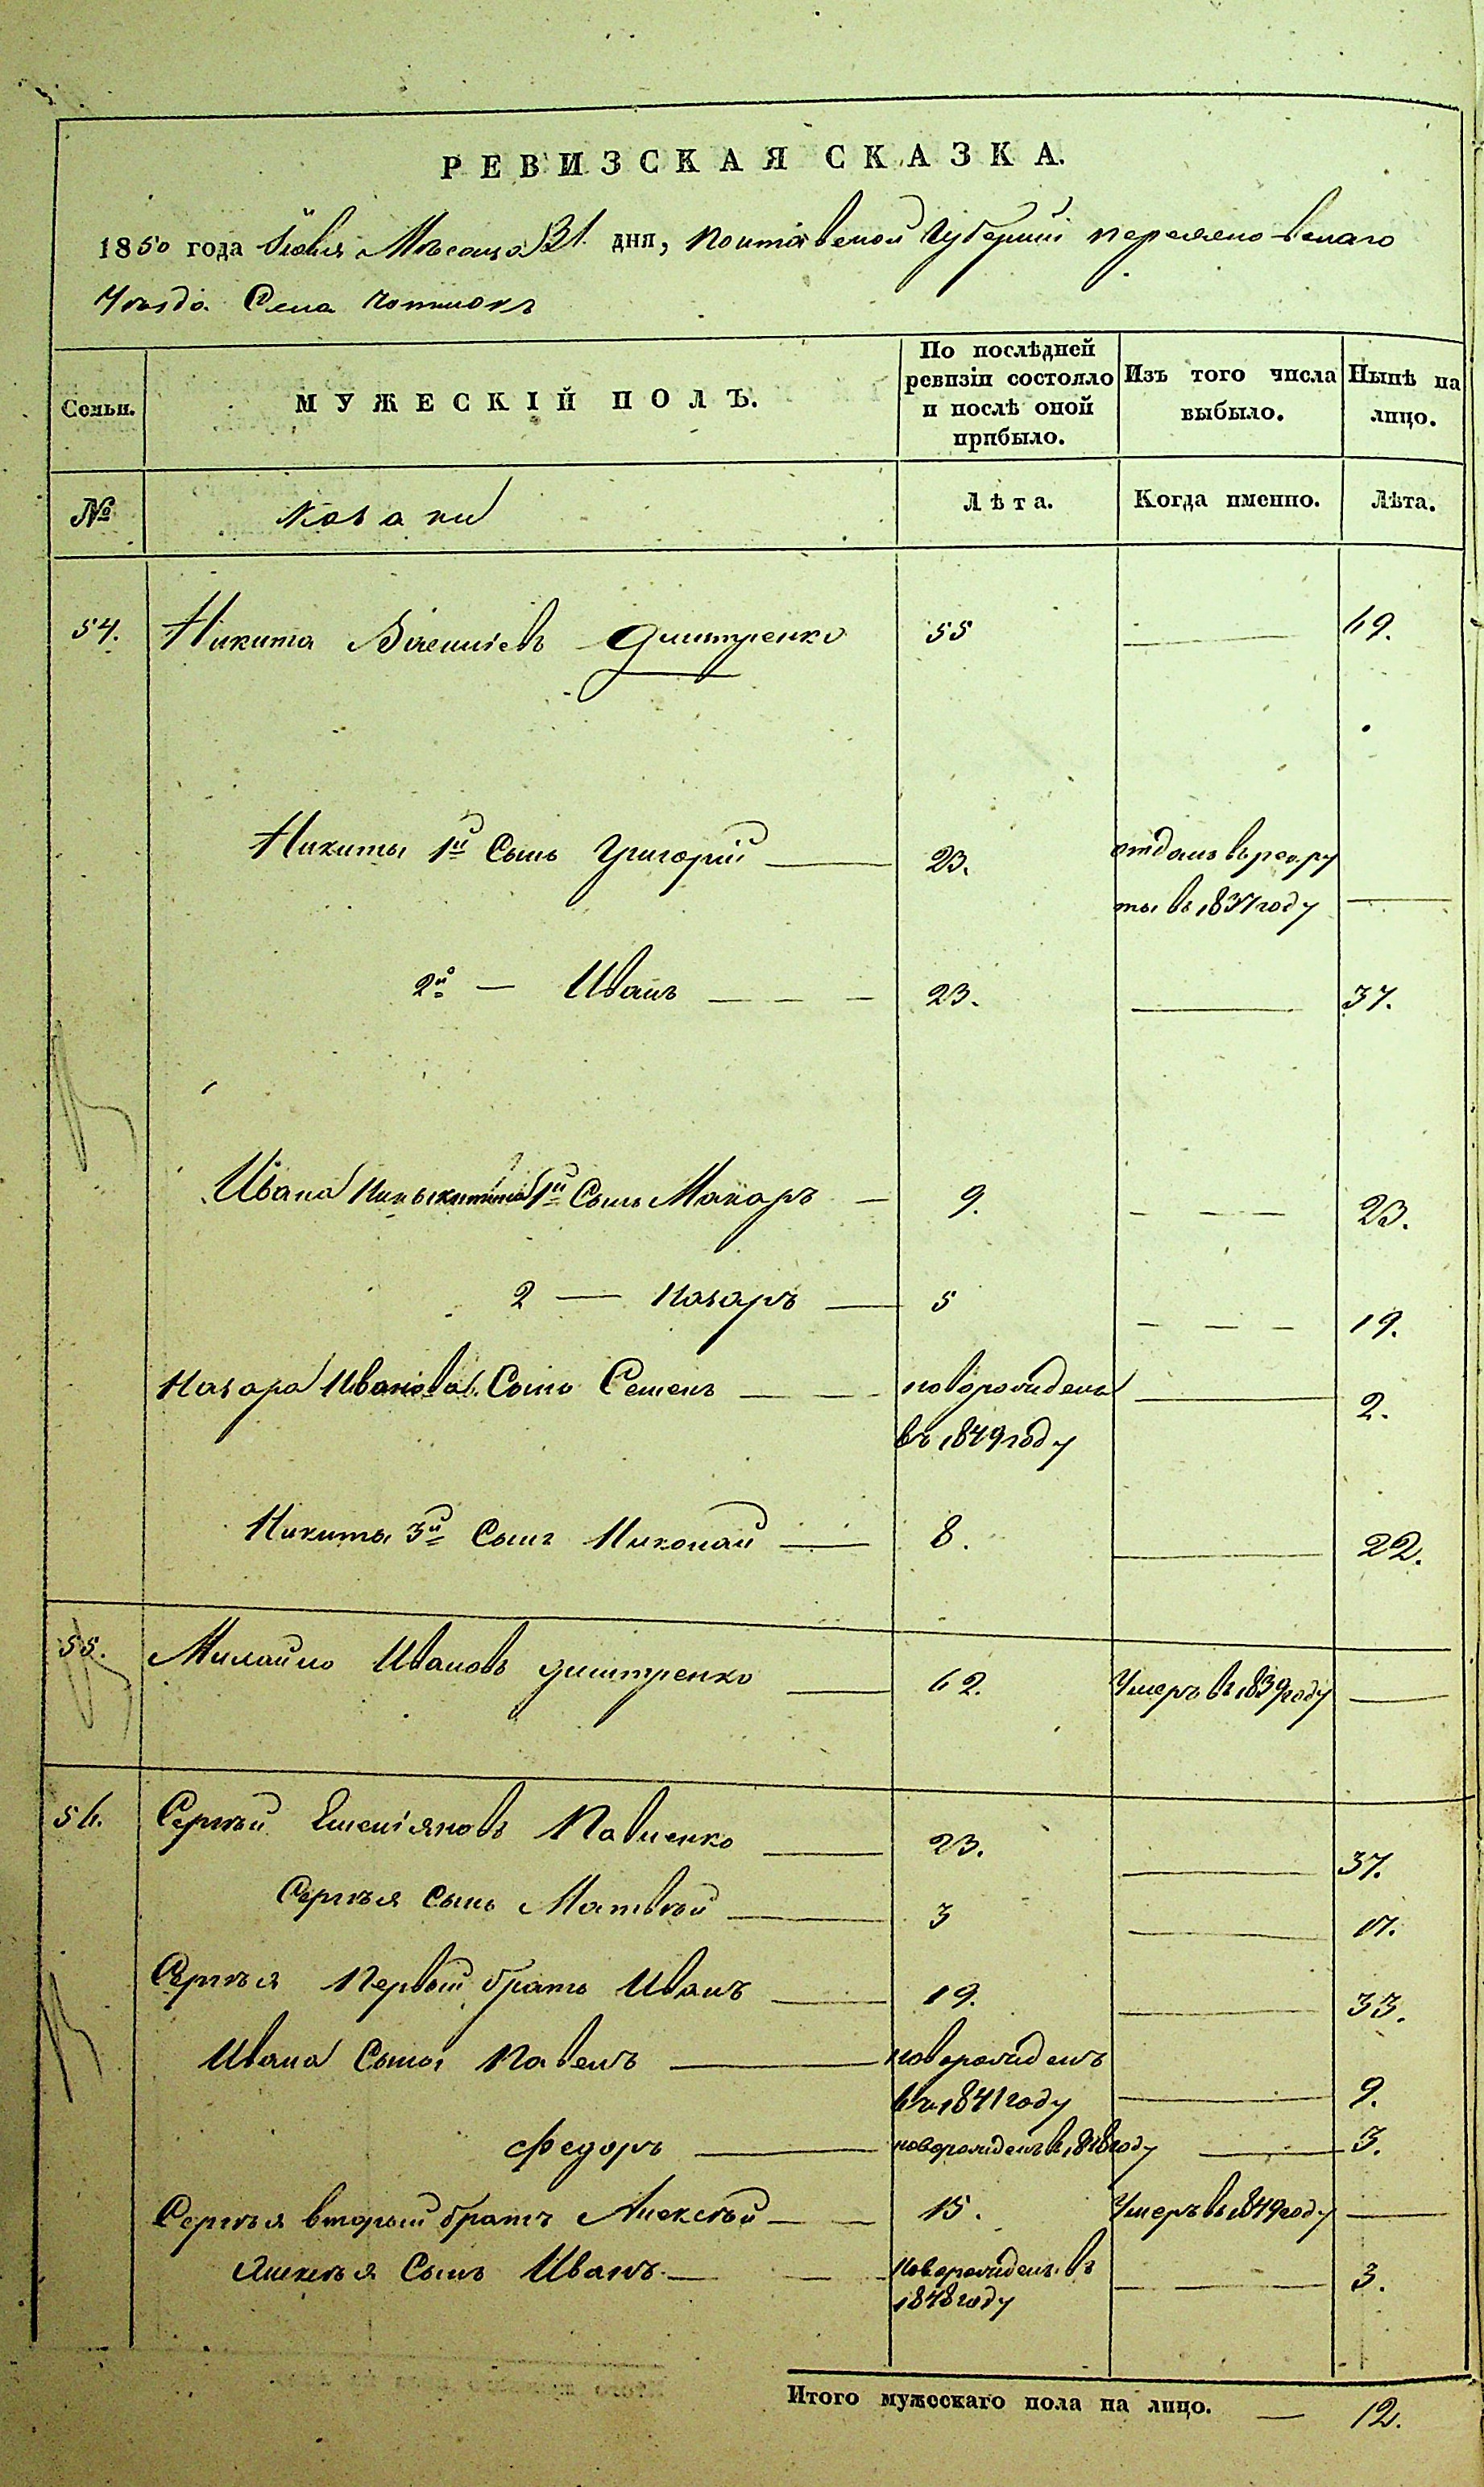 РЕВИЗСКАЯ СКАЗКА.
1850 года Мѣсяца 31 дня, Полтавской Губерніи переяславскаго
Уѣзда Села
Семьи. МУЖЕСКІЙ ПОЛЪ. По послѣдней ревизіи состояло и послѣ оной прибыло. Изъ того числа выбыло. Нынѣ на лицо.
№ козаки Лѣта. Когда именно. Лѣта.
54. Никита дмитренко 55 — 69.
Никиты 1й Сынъ Григорій — 23. отданъ въ рекру
ты въ 1837 году —
2й — Иванъ — — — 23. — 37.
Ивана 1й Сынъ Макаръ — 9. — — — 23.
2 — Назаръ — 5 — — — 19.
Назара Иванова Сынъ Семенъ — — новорожденъ — 2.
въ 1849 году
Никиты 3й Сынъ Николай — 8. — 22.
55. Михайло Ивановъ дмитренко — 62. Умеръ въ 1839 году —
56. Сергѣй Емеліяновъ Павленко — 23. — 37.
Сергѣя Сынъ Матвѣй — 3 — 17.
Сергѣя Первый братъ Иванъ — 19. — 33.
Ивана Сыны Павелъ — новорожденъ
въ 1841 году — 9.
Федоръ — новорожденъ в 1848 году — 3.
Сергѣя вторый братъ Алексѣй — — 15. Умеръ въ 1849 году —
Алексѣя Сынъ Иванъ — — новорожденъ въ — — 3.
1848 году
Итого мужескаго пола на лицо. — 12.